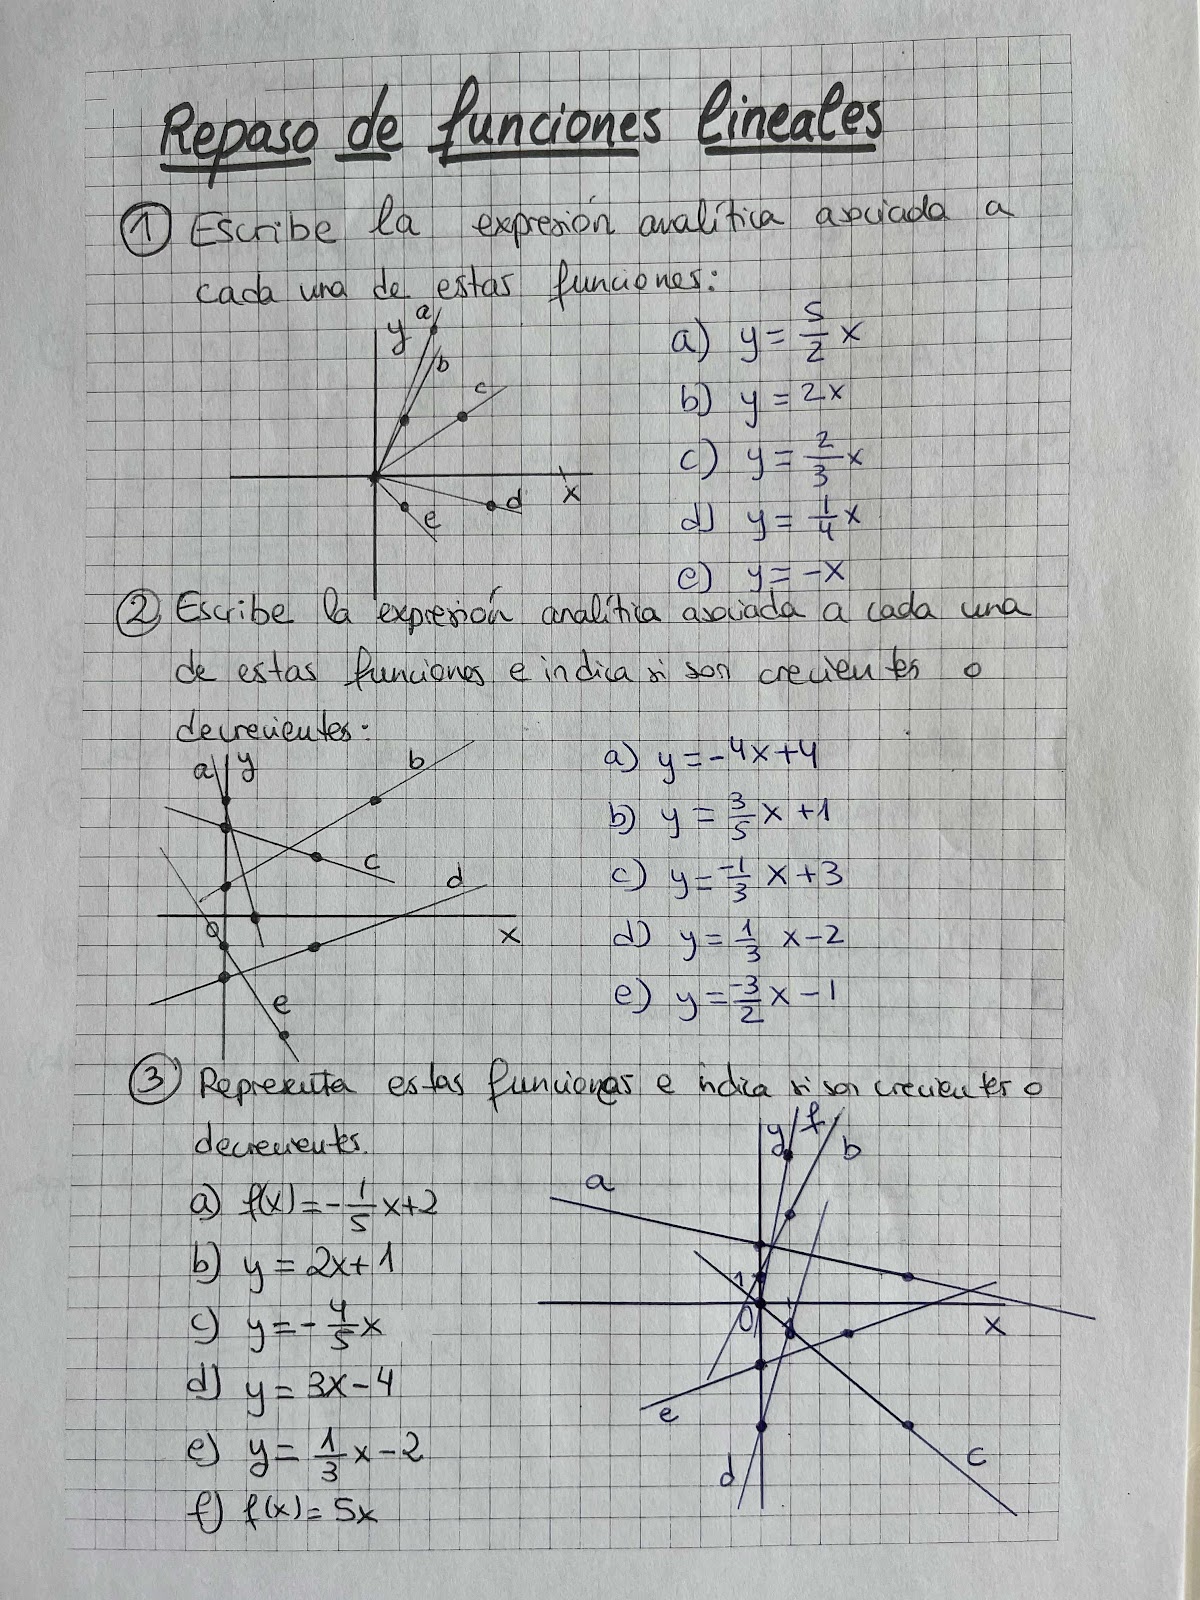 Repaso de funciones lineales
① Escribe la expresión analítica asociada a
cada una de estas funciones:
y
a
b
c
d
e
x
a) y = 5/2 x
b) y = 2x
c) y = 2/3 x
d) y = 1/4 x
e) y = -x
② Escribe la expresión analítica asociada a cada una
de estas funciones e indica si son crecientes o
decrecientes:
a y
b
c
d
0
x
e
a) y = -4x+4
b) y = 3/5 x +1
c) y = -1/3 x +3
d) y = 1/3 x-2
e) y = -3/2 x -1
③ Representa estas funciones e indica si son crecientes o
decrecientes.
a) f(x) = -1/5 x+2
b) y = 2x+1
c) y = -4/5 x
d) y = 3x-4
e) y = 1/3 x -2
f) f(x) = 5x
y f
b
a
1
0
1
x
e
d
c